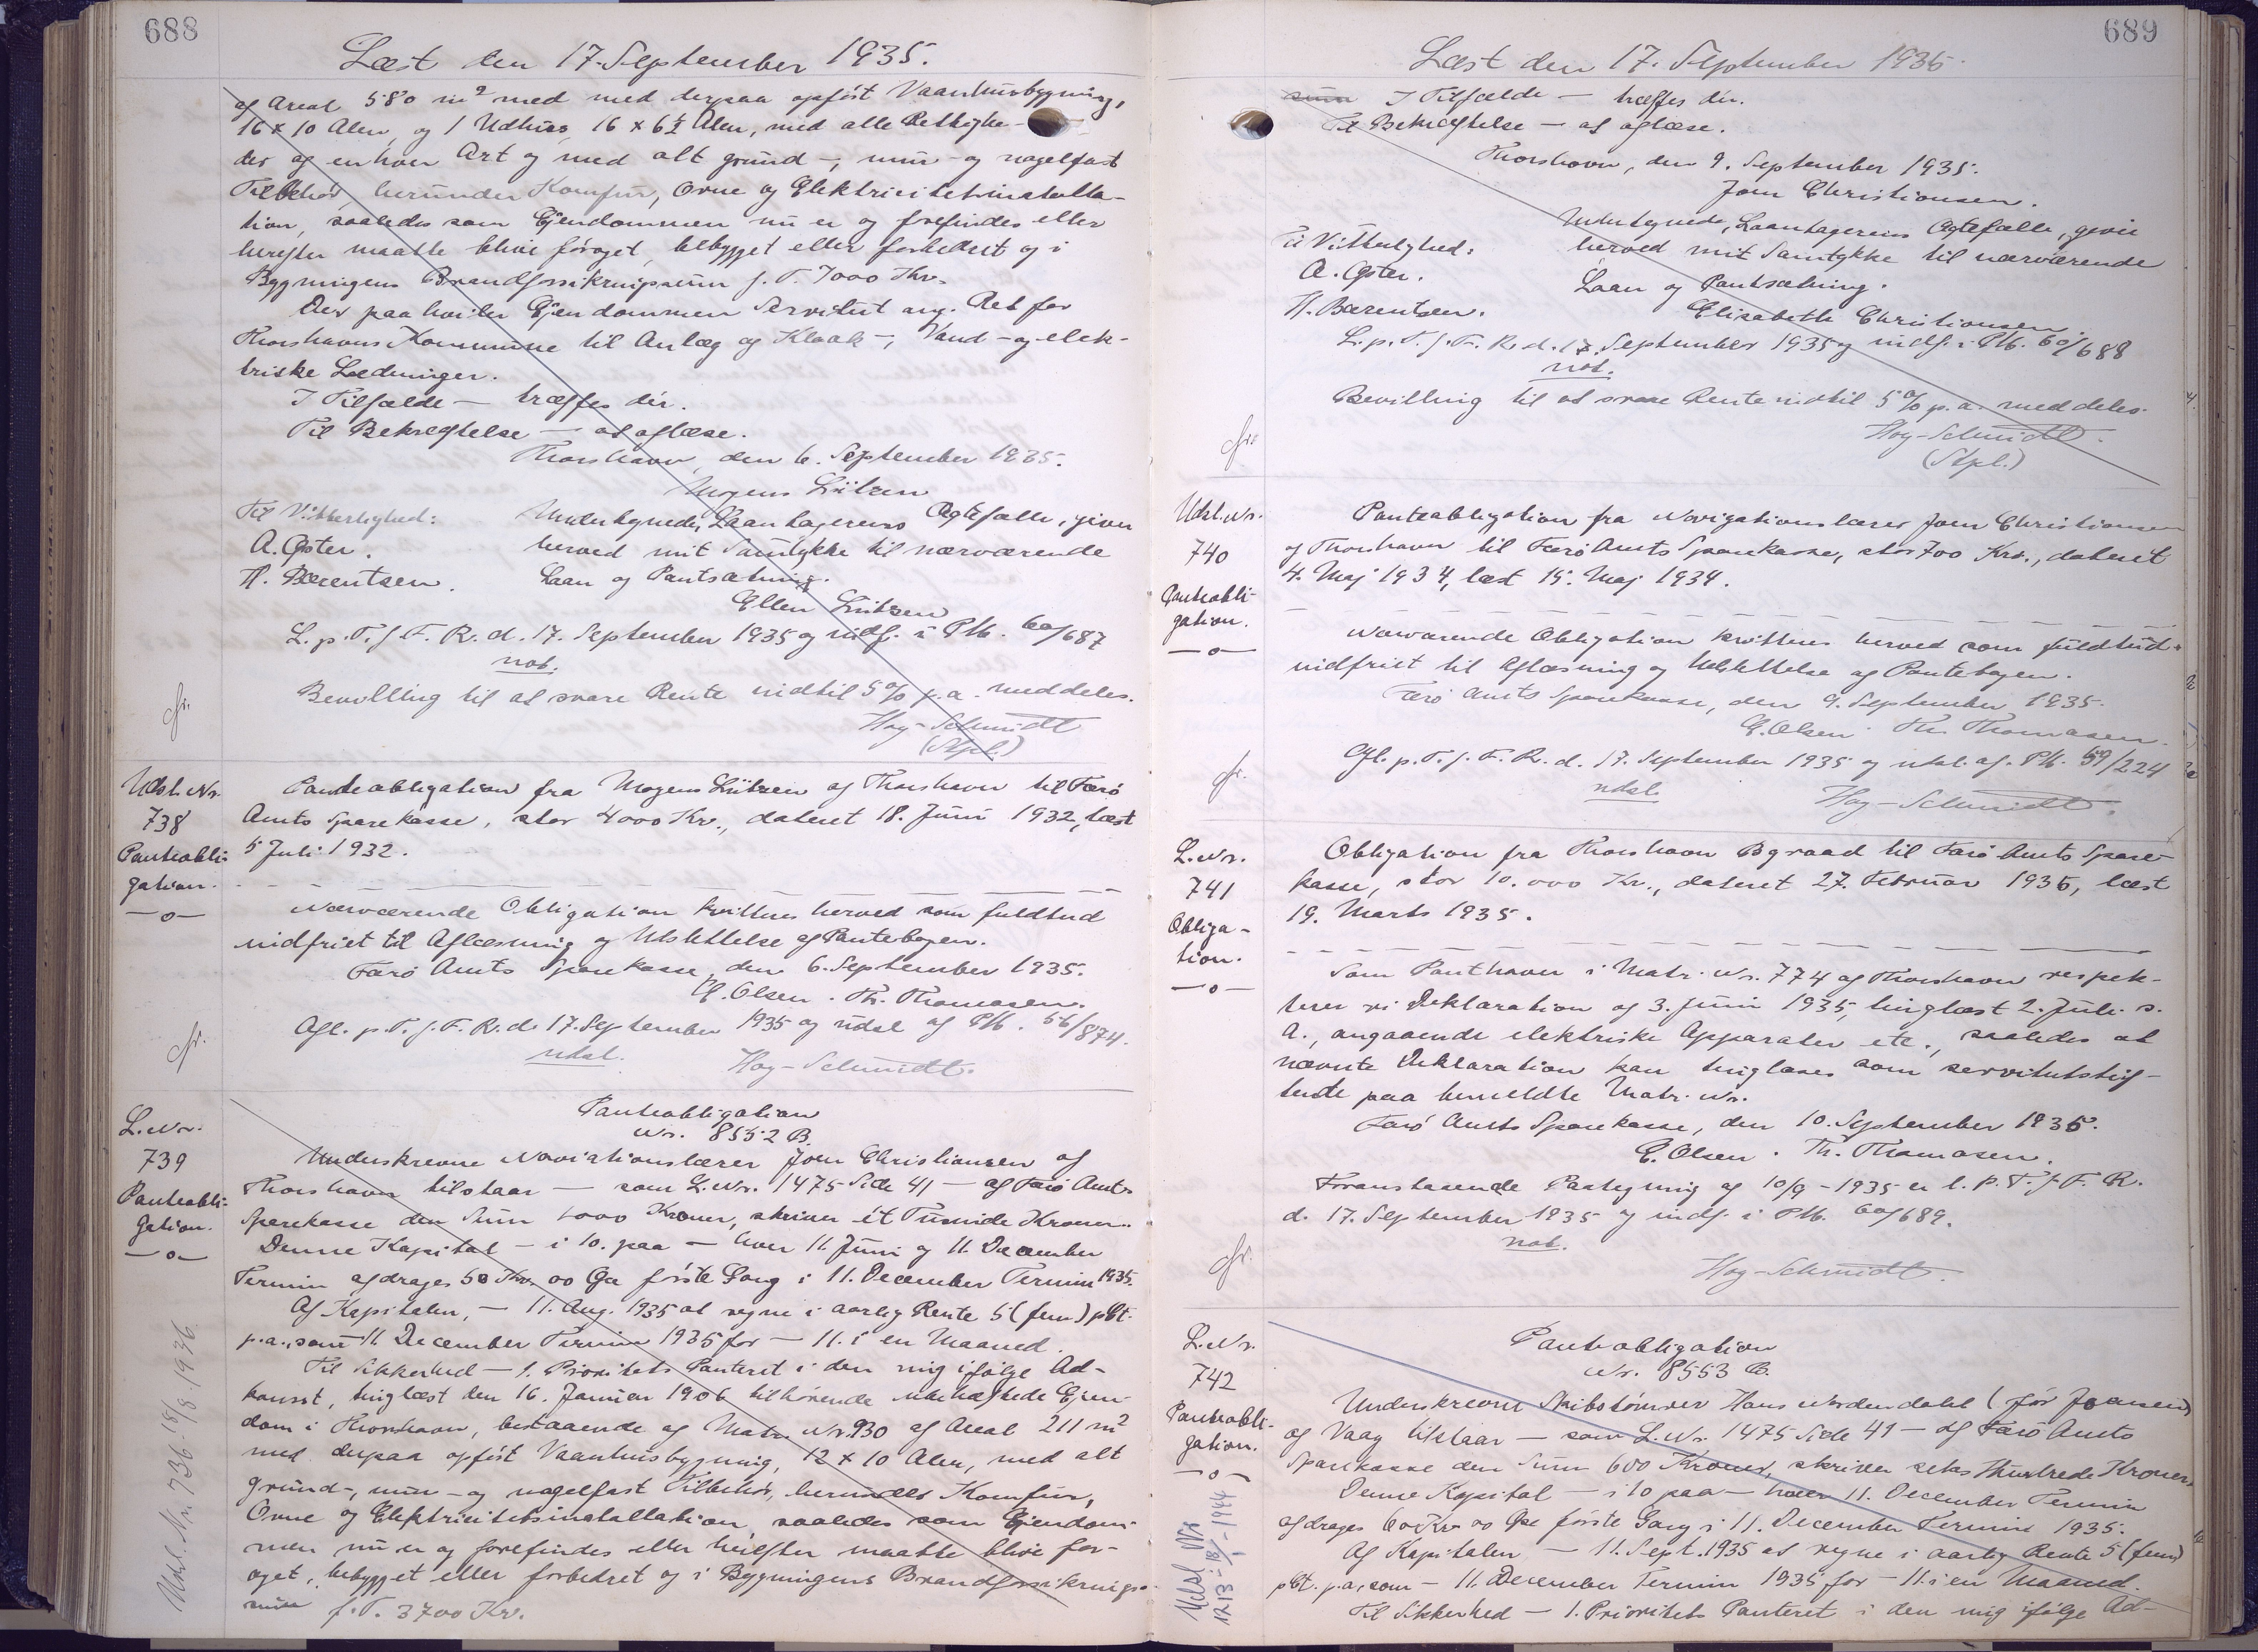 688
Læst den 17. September 1935.
af Areal 580 m² med med derpaa opført Vaaanhusbygning,
16 x 10 Alen, og 1 Udhus, 16 x 6½ Alen, med alle Rettighe-
der af enhver Art og med alt grund-, mur- og nagelfast
Tilbehør, herunder Komfur, Ovne og Elektricitetsinstalla-
tion, saaledes som Ejendommen nu er og forefindes eller
herefter maatte blive forøget, bebygget eller forbedret og i
Bygningens Brandforsikringssum f. T. 7000 Kr.
Der paa hviler Ejendommen Servitut ang. Ret for
Thorshavns Kommune til Anlæg og Kloak-, Vand- og elek-
triske Ledninger.
I Tilfælde — træffes dér.
Til Bekræftelse — at aflæse.
Thorshavn, den 6. September 1935.
Mogens Lützen
Til Vitterlighed: Undertegnede, Laantagerens Ægtefælle, giver
A. Øster. herved mit Samtykke til nærværende
H. Bærentsen. Laan og Pantsætning.
Ellen Lützen
L. p. T. f. F. R. d. 17. September 1935 og indf. i Pb. 60/687
not.
Bevilling til at svare Rente indtil 5 % p. a. meddeles.
Høg-Schmidt
(Stpl.)
cfr.
Udsl. Nr.
738
Panteobli-
gation.
—o—
Panteobligation fra Mogens Lützen af Thorshavn til Færø
Amts Sparekasse, stor 4000 Kr., dateret 18. Juni 1932, læst
5 Juli 1932.
Nærværende Obligation kvitteres herved som fuldtud
indfriet til Aflæsning og Udslettelse af Pantebogen.
Færø Amts Sparekasse, den 6. September 1935.
E. Olsen. Th. Thomasen.
Afl. p. T. f. F. R. d. 17. September 1935 og udsl. af Pb. 56/874.
udsl. Høg-Schmidt.
cfr.
L. Nr.
739
Panteobli-
gation.
—o—
Panteobligation
Nr. 8552 B.
Underskrevne Naviationslærer Joen Christiansen af
Thorshavn tilstaar — som L. Nr. 1475 Side 41 — af Færø Amts
Sparekasse den Sum 1000 Kroner, skriver ét Tusinde Kroner.
Denne Kapital — i 10. paa — hver 11. Juni og 11. December
Termin afdrages 50 Kr. 00 Øre første Gang i 11. December Termin 1935.
Af Kapitalen, — 11. Aug. 1935 at regne i aarlig Rente 5 (fem) pCt.
p.a., som 11. December Termin 1935 for — 11. i en Maaned.
Til Sikkerhed — 1. Prioritets Panteret i den mig ifølge Ad-
komst, tinglæst den 16. Januar 1906 tilhørende ubehæftede Ejen-
dom i Thorshavn, bestaaende af Matr. Nr. 930 af Areal 211 m²
med derpaa opført Vaaanhusbygning, 12 x 10 Alen, med alt
grund-, mur- og nagelfast Tilbehør, herunder Komfur,
Ovne og Elektricitetsinstallation, saaledes som Ejendom-
men nu er og forefindes eller herefter maatte blive for-
øget, bebygget eller forbedret og i Bygningens Brandforsikrings-
sum f. T. 3700 Kr.
Udsl. Nr. 736 - 18/8 - 1936
689
Læst den 17. September 1935.
sum I Tilfælde — træffes dér.
Til Bekræftelse — at aflæse.
Thorshavn, den 9. September 1935.
Joen Christiansen.
Undertegnede, Laantagerens Ægtefælle, giver
Til Vitterlighed: herved mit Samtykke til nærværende
A. Øster. Laan og Pantsætning.
H. Bærentsen. Elisabeth Christiansen.
L. p. T. f. F. R. d. 17. September 1935 og indf. i Pb. 60/688
not.
Bevilling til at svare Rente indtil 5 % p. a. meddeles.
Høg-Schmidt.
(Stpl.)
cfr.
Udsl. Nr.
740
Panteobli-
gation.
—o—
Panteobligation fra Navigationslærer Joen Christiansen
af Thorshavn til Færø Amts Sparekasse, stor 700 Kr., dateret
4. Maj 1934, læst 15. Maj 1934.
Nærværende Obligation kvitteres herved som fuldtud
indfriet til Aflæsning og Udslettelse af Pantebogen.
Færø Amts Sparekasse, den 9. September 1935.
E. Olsen. Th. Thomasen.
Afl. p. T. f. F. R. d. 17. September 1935 og udsl. af Pb. 59/224
udsl. Høg-Schmidt.
cfr.
L. Nr.
741
Obliga-
tion.
—o—
Obligation fra Thorshavn Byraad til Færø Amts Spare-
kasse, stor 10.000 Kr., dateret 27. Februar 1935, læst
19. Marts 1935.
Som Panthaver i Matr. Nr. 774 af Thorshavn respek-
terer vi Deklaration af 3. Juni 1935, tinglæst 2. Juli s.
A., angaaende elektriske Apparater etc., saaledes at
nævnte Deklaration kan tinglæses som servitutstif-
tende paa bemeldte Matr. Nr.
Færø Amts Sparekasse, den 10. September 1935.
E. Olsen. Th. Thomasen.
Foranstaaende Paategning af 10/9 - 1935 er l. p. T. f. F. R.
d. 17. September 1935 og indf. i Pb. 60/689.
not.
Høg-Schmidt.
cfr.
L. Nr.
742
Panteobli-
gation.
—o—
Panteobligation
Nr. 8553 B.
Underskrevne Skibstømrer Hans Nordendahl (før Joensen)
af Vaag tilstaar — som L. Nr. 1475 Side 41 — af Færø Amts
Sparekasse den Sum 600 Kroner, skriver seks Hundrede Kroner.
Denne Kapital — i 10 paa — hver 11. December Termin
afdrages 60 Kr. 00 Øre første Gang i 11. December Termin 1935.
Af Kapitalen — 11. Sept. 1935 at regne i aarlig Rente 5 (fem)
pCt. p.a., som — 11. December Termin 1935 for — 11. i en Maaned.
Til Sikkerhed — 1. Prioritets Panteret i den mig ifølge Ad-
Udsl. Nr.
1213 - 18/1 - 1944